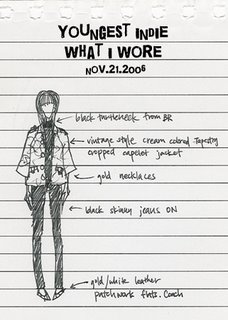 YOUNGEST INDIE
WHAT I WORE
NOV.21.2006
black turtleneck from BR
vintage style cream colored Tapestry
cropped capelet jacket
gold necklaces
black skinny jeans ON
gold/white leather
patchwork flats. Coach